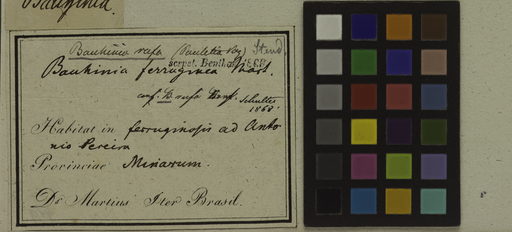 Bauhinia.
Bauhinia rufa (Pauletia Bg) Steud
Bauhinia ferruginea Mart.
conf. B. rufa Bong. Schultes
1868
Habitat in ferruginosis ad Anto
nio Pereira
Provinciae Minarum.
Dr Martius Iter Brasil.